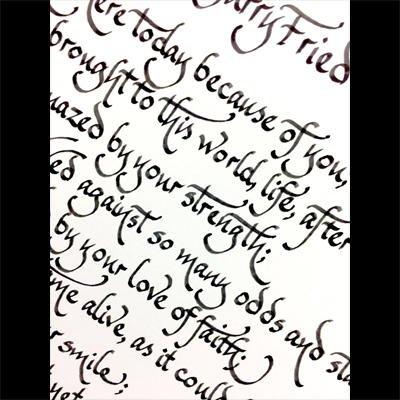 Fried
here today because of you,
brought to this world, life, after
by your strength;
against so many odds and
by your love of faith;
time alive, as it could
smile;